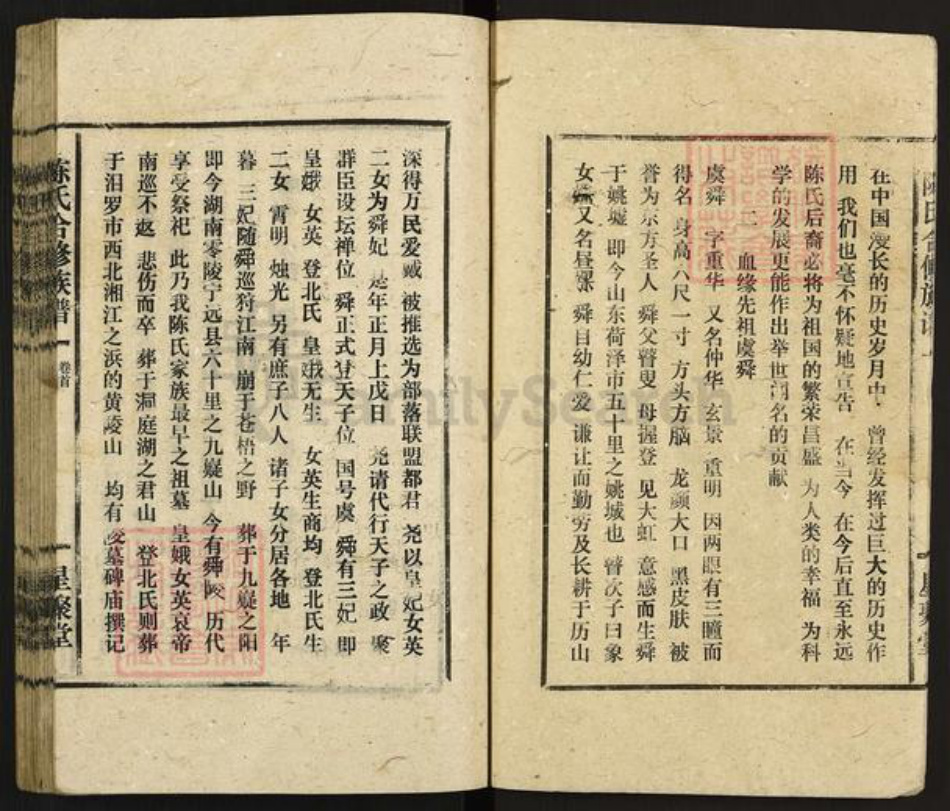 在中国漫长的历史岁月中 曾经发挥过巨大的历史作
用 我们也毫不怀疑地宣告 在当今 在今后直至永远
陈氏后裔必将为祖国的繁荣昌盛 为人类的幸福 为科
学的发展更能作出举世闻名的贡献
二 血缘先祖虞舜
虞舜 字重华 又名仲华 玄景 重明 因两眼有三瞳而
得名 身高六尺一寸 方头方脑 龙颜大口 黑皮肤 被
誉为东方圣人 舜父瞽叟 母握登 见大虹 意感而生舜
于姚墟 即今山东荷泽市五十里之姚城也 瞽次子曰象
女 又名 舜自幼仁爱 谦让而勤劳及长耕于历山
深得万民爱戴 被推选为部落联盟都君 尧以皇妃女英
二女为舜妃 是年正月上戊日 尧请代行天子之政 聚
群臣设坛禅位 舜正式登天子位 国号虞 舜有三妃 即
皇娥 女英 登北氏 皇娥无生 女英生商均 登北氏生
二女 霄明 烛光 另有庶子八人 诸子女分居各地 年
暮 三妃随舜巡狩江南 崩于苍梧之野 葬于九嶷之阳
即今湖南零陵宁远县六十里之九嶷山 今有舜陵 历代
享受祭祀 此乃我陈氏家族最早之祖墓 皇娥女英哀帝
南巡不返 悲伤而卒 葬于洞庭湖之君山 登北氏则葬
于汨罗市西北湘江之浜的黄陵山 均有陵墓碑庙撰记
陈氏合修族谱 卷首 星聚堂
FamilySearch